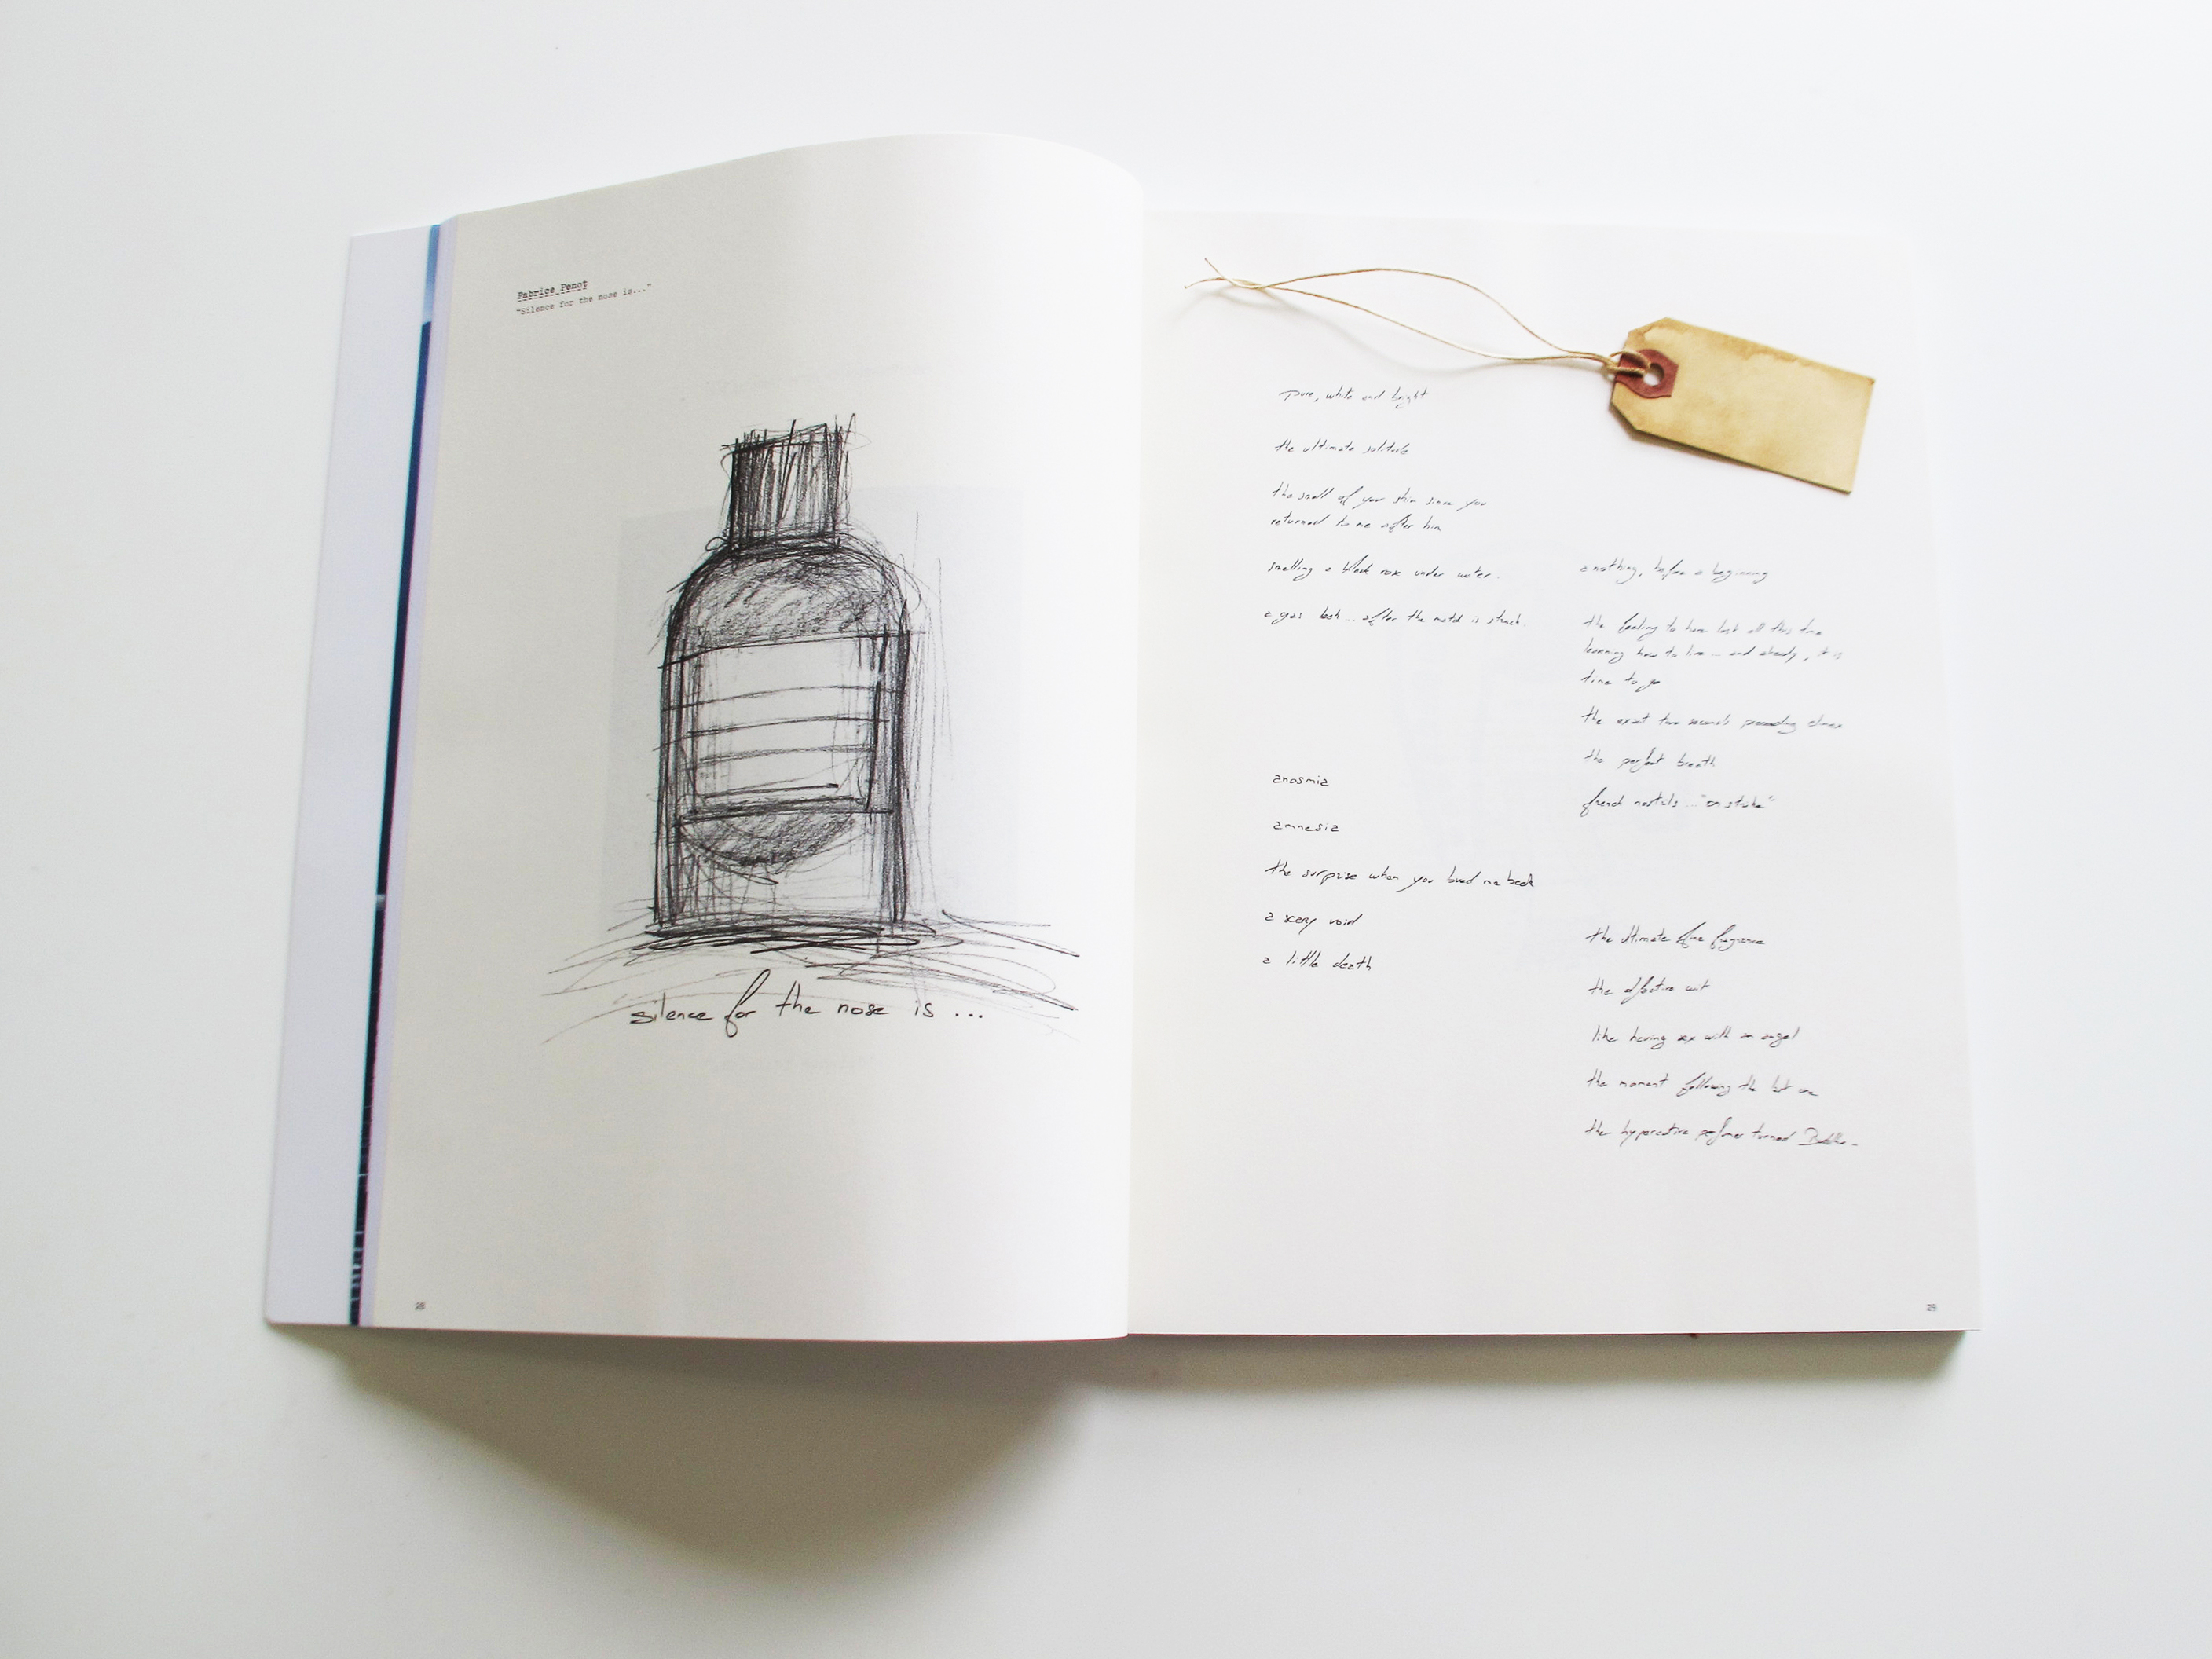 Fabrice Penot
"Silence for the nose is..."
silence for the nose is ...
28
pure, white and bright
the ultimate solitude
the smell of your skin since you
returned to me after him
smelling a black rose under water.
a gas leak ... after the match is struck.
anosmia
amnesia
the surprise when you loved me back
a scary void
a little death
a nothing, before a beginning
the feeling to have lost all this time
learning how to live ... and already, it is
time to go
the exact two seconds preceeding climax
the perfect breath
french nostrils ... "on strike"
the ultimate fine fragrance
the olfactive
like having sex with an angel
the moment following the last one
the hyperactive perfumer turned Buddha
29